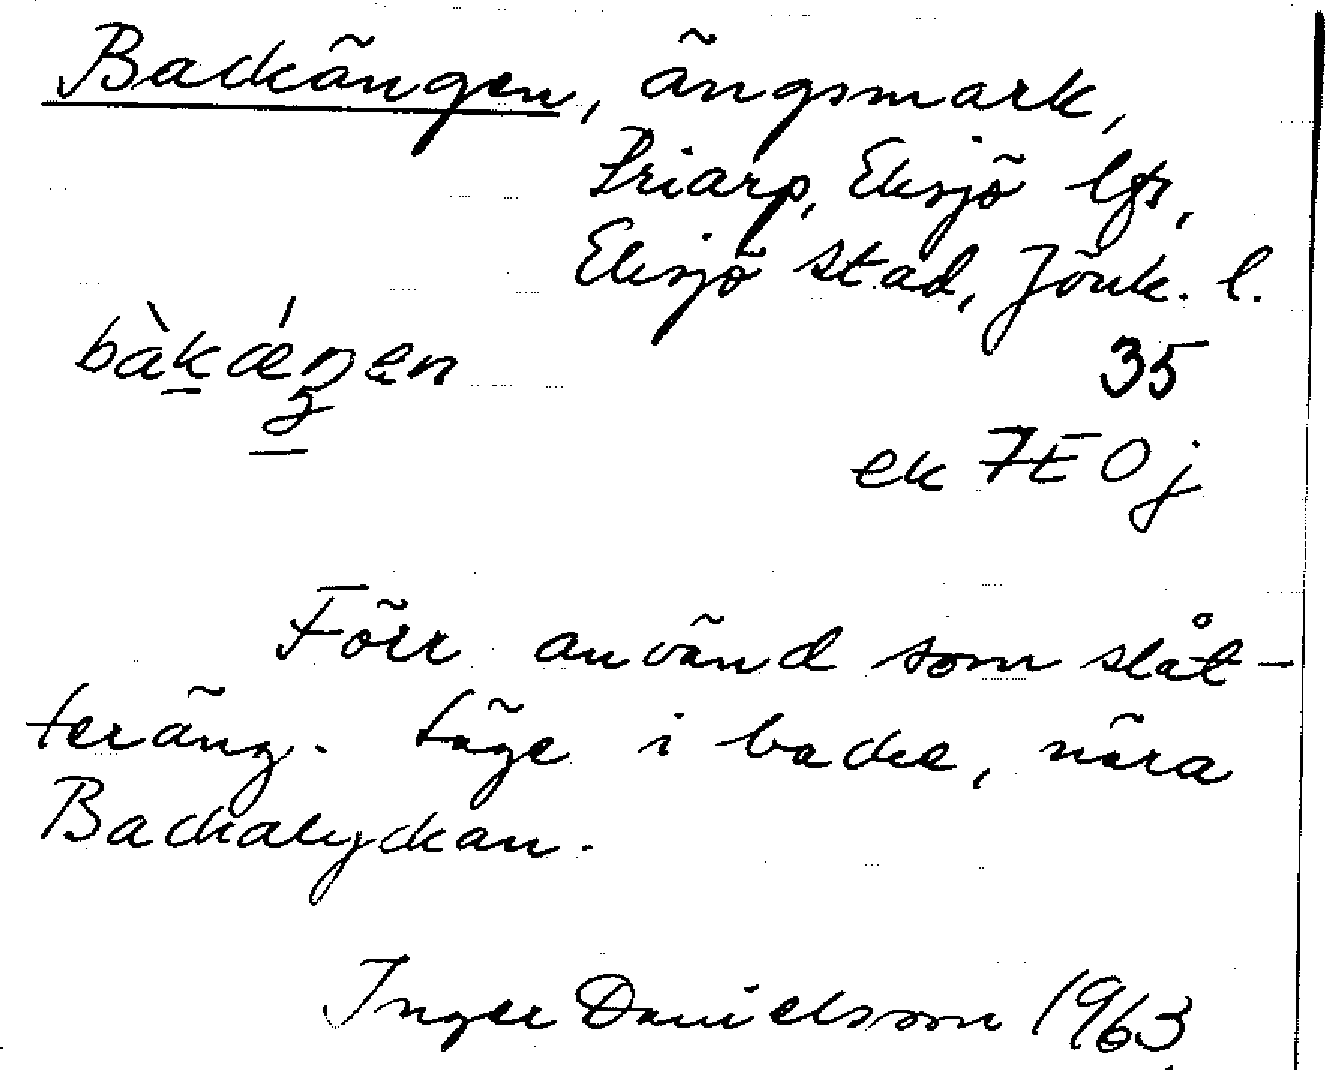 Backängen, ängsmark,
Priarp, Eksjö lfs,
Eksjö stad, Jönk. l.
bàkǽŋen
35
ek 7E 0j
Förr använd som slåt-
teräng. Läge i backe, nära
Backalyckan.
Inger Danielsson 1963